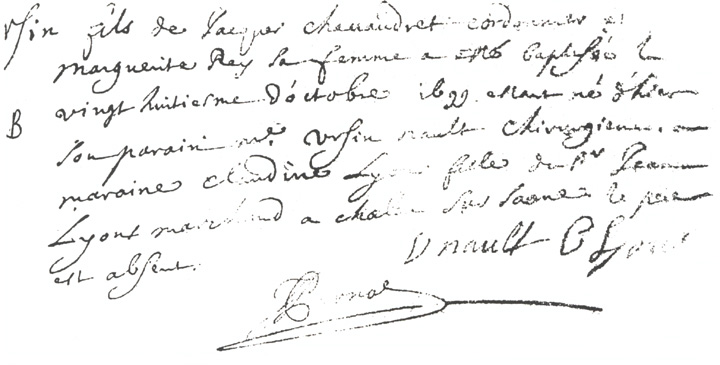 Ursin fils de Jacques chavandret cordonnier et
marguerite Rey sa femme a esté baptisée le
B vingt huitiesme d'octobre 1699 estant né d'hier
son parain mr. Ursin nault chirurgien. sa
maraine claudine Lyons fille du sr Jean
Lyons marchand a chalon sur saone le père
est absent.
U nault C Lyons